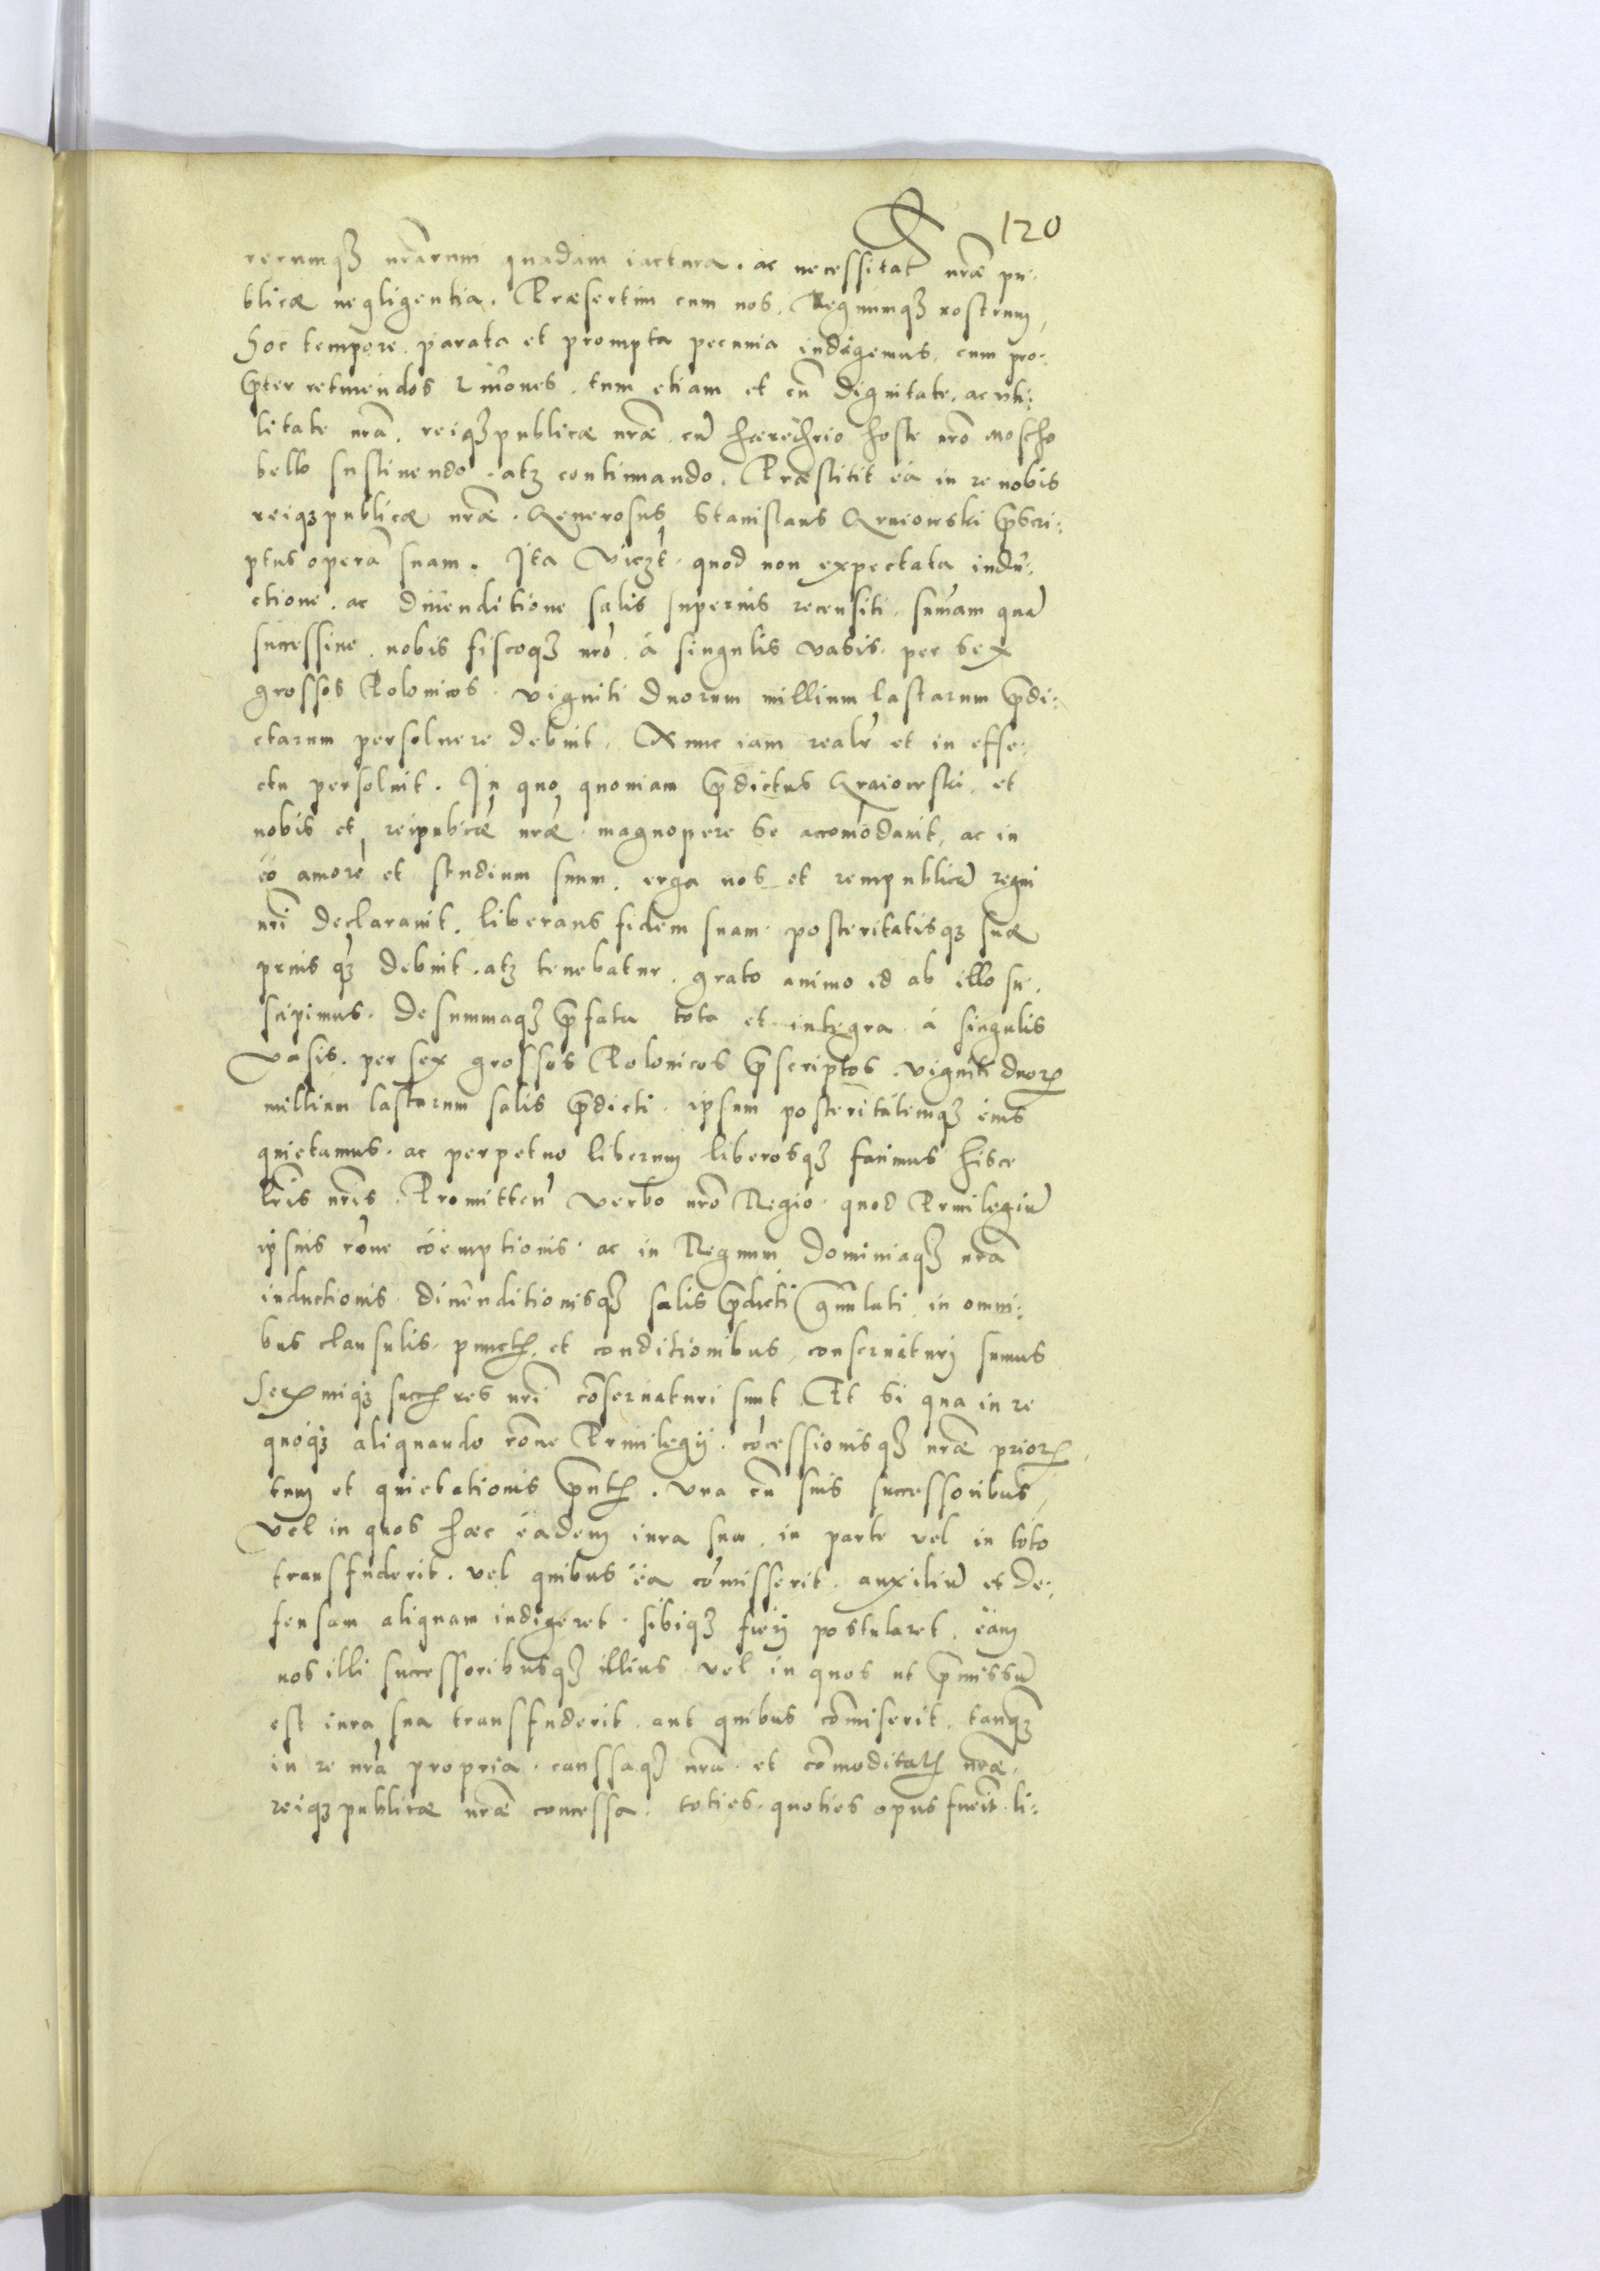 120
rerumqꝫ nrārum quadam iactura . ac necessitat nrāe pu:
blicae negligentia . Praesertim cum nos . Regnumqꝫ nostrum,
hoc tempore . parata et prompta pecunia indigemus, cum pro:
pter retinendos tum etiam et cū dignitate, ac uti:
litate nrā . reiqꝫpublicae nrāe . cū hoste nrō Moscho
bello sustinendo . atqꝫ continuando . Praestitit eā in re nobis
reiqꝫpublicae nrāe . Generosus Stanislaus Kraiowski p̄scri:
ptus operā suam . Ita quod non expectata indu:
ctione . ac divenditione salis superius recensiti . sum̄am quā
successive . nobis fiscoqꝫ nrō . á singulis vasis . per sex
grossos Polonicos . viginti duorum millium lastarum p̄di:
ctarum persolvere debuit . Nunc iam realr̄ et in effe:
ctu persolvit . In quo quoniam p̄dictus Kraiowski . et
nobis et reipublicae nrāe . magnopere se accom̄odavit, ac in
eo amorē et studium suum . erga nos et rempublicā regni
nrī declaravit . liberans fidem suam posteritatisqꝫ suae
prius qꝫ debuit . atqꝫ tenebatur . grato animo id ab illo su:
scipimus . De summaqꝫ p̄fata tota et integra á singulis
vasis . per sex grossos Polonicos p̄scriptos . viginti duorꝝ
millium lastarum salis p̄dicti . ipsum posteritatemqꝫ eius
quietamus . ac perpetuo liberum liberosqꝫ facimus hisce
lrīs nrīs . Promitten̄ verbo nrō Regio . quod Privilegiū
ipsius rōne coemptionis . ac in Regnum Dominiaqꝫ nrā
inductionis . divenditionisqꝫ salis p̄dicti granulati in omni:
bus clausulis . punct et conditionibus, conservaturi sumus
Ser miqꝫ succ res nrī cōservaturi sunt . Et si qua in re
quoqꝫ aliquando rōne Privilegij . cōcessionisqꝫ nrāe priorꝭ
tum et quietationis p̄ntꝭ . una cū suis successoribus,
vel in quos haec eadem iura sua . in parte vel in toto
transfuderit . vel quibus ea cōmisserit . auxiliū et de:
fensam aliquam indigeret . sibiqꝫ fierj postularet . eam
nos illi successoribusqꝫ illius vel in quos ut p̄missū
est iura sua transfuderit . aut quibus cōmiserit . tanqꝫ
in re nrā propria . caussaqꝫ nrā . et cōmoditatꝭ nrāe .
reiqꝫpublicae nrāe concessa . toties . quoties opus fuerit . li: